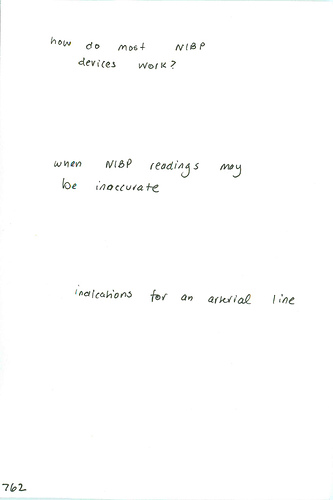 how do most NIBP
devices work?
when NIBP readings may
be inaccurate
indications for an arterial line
762